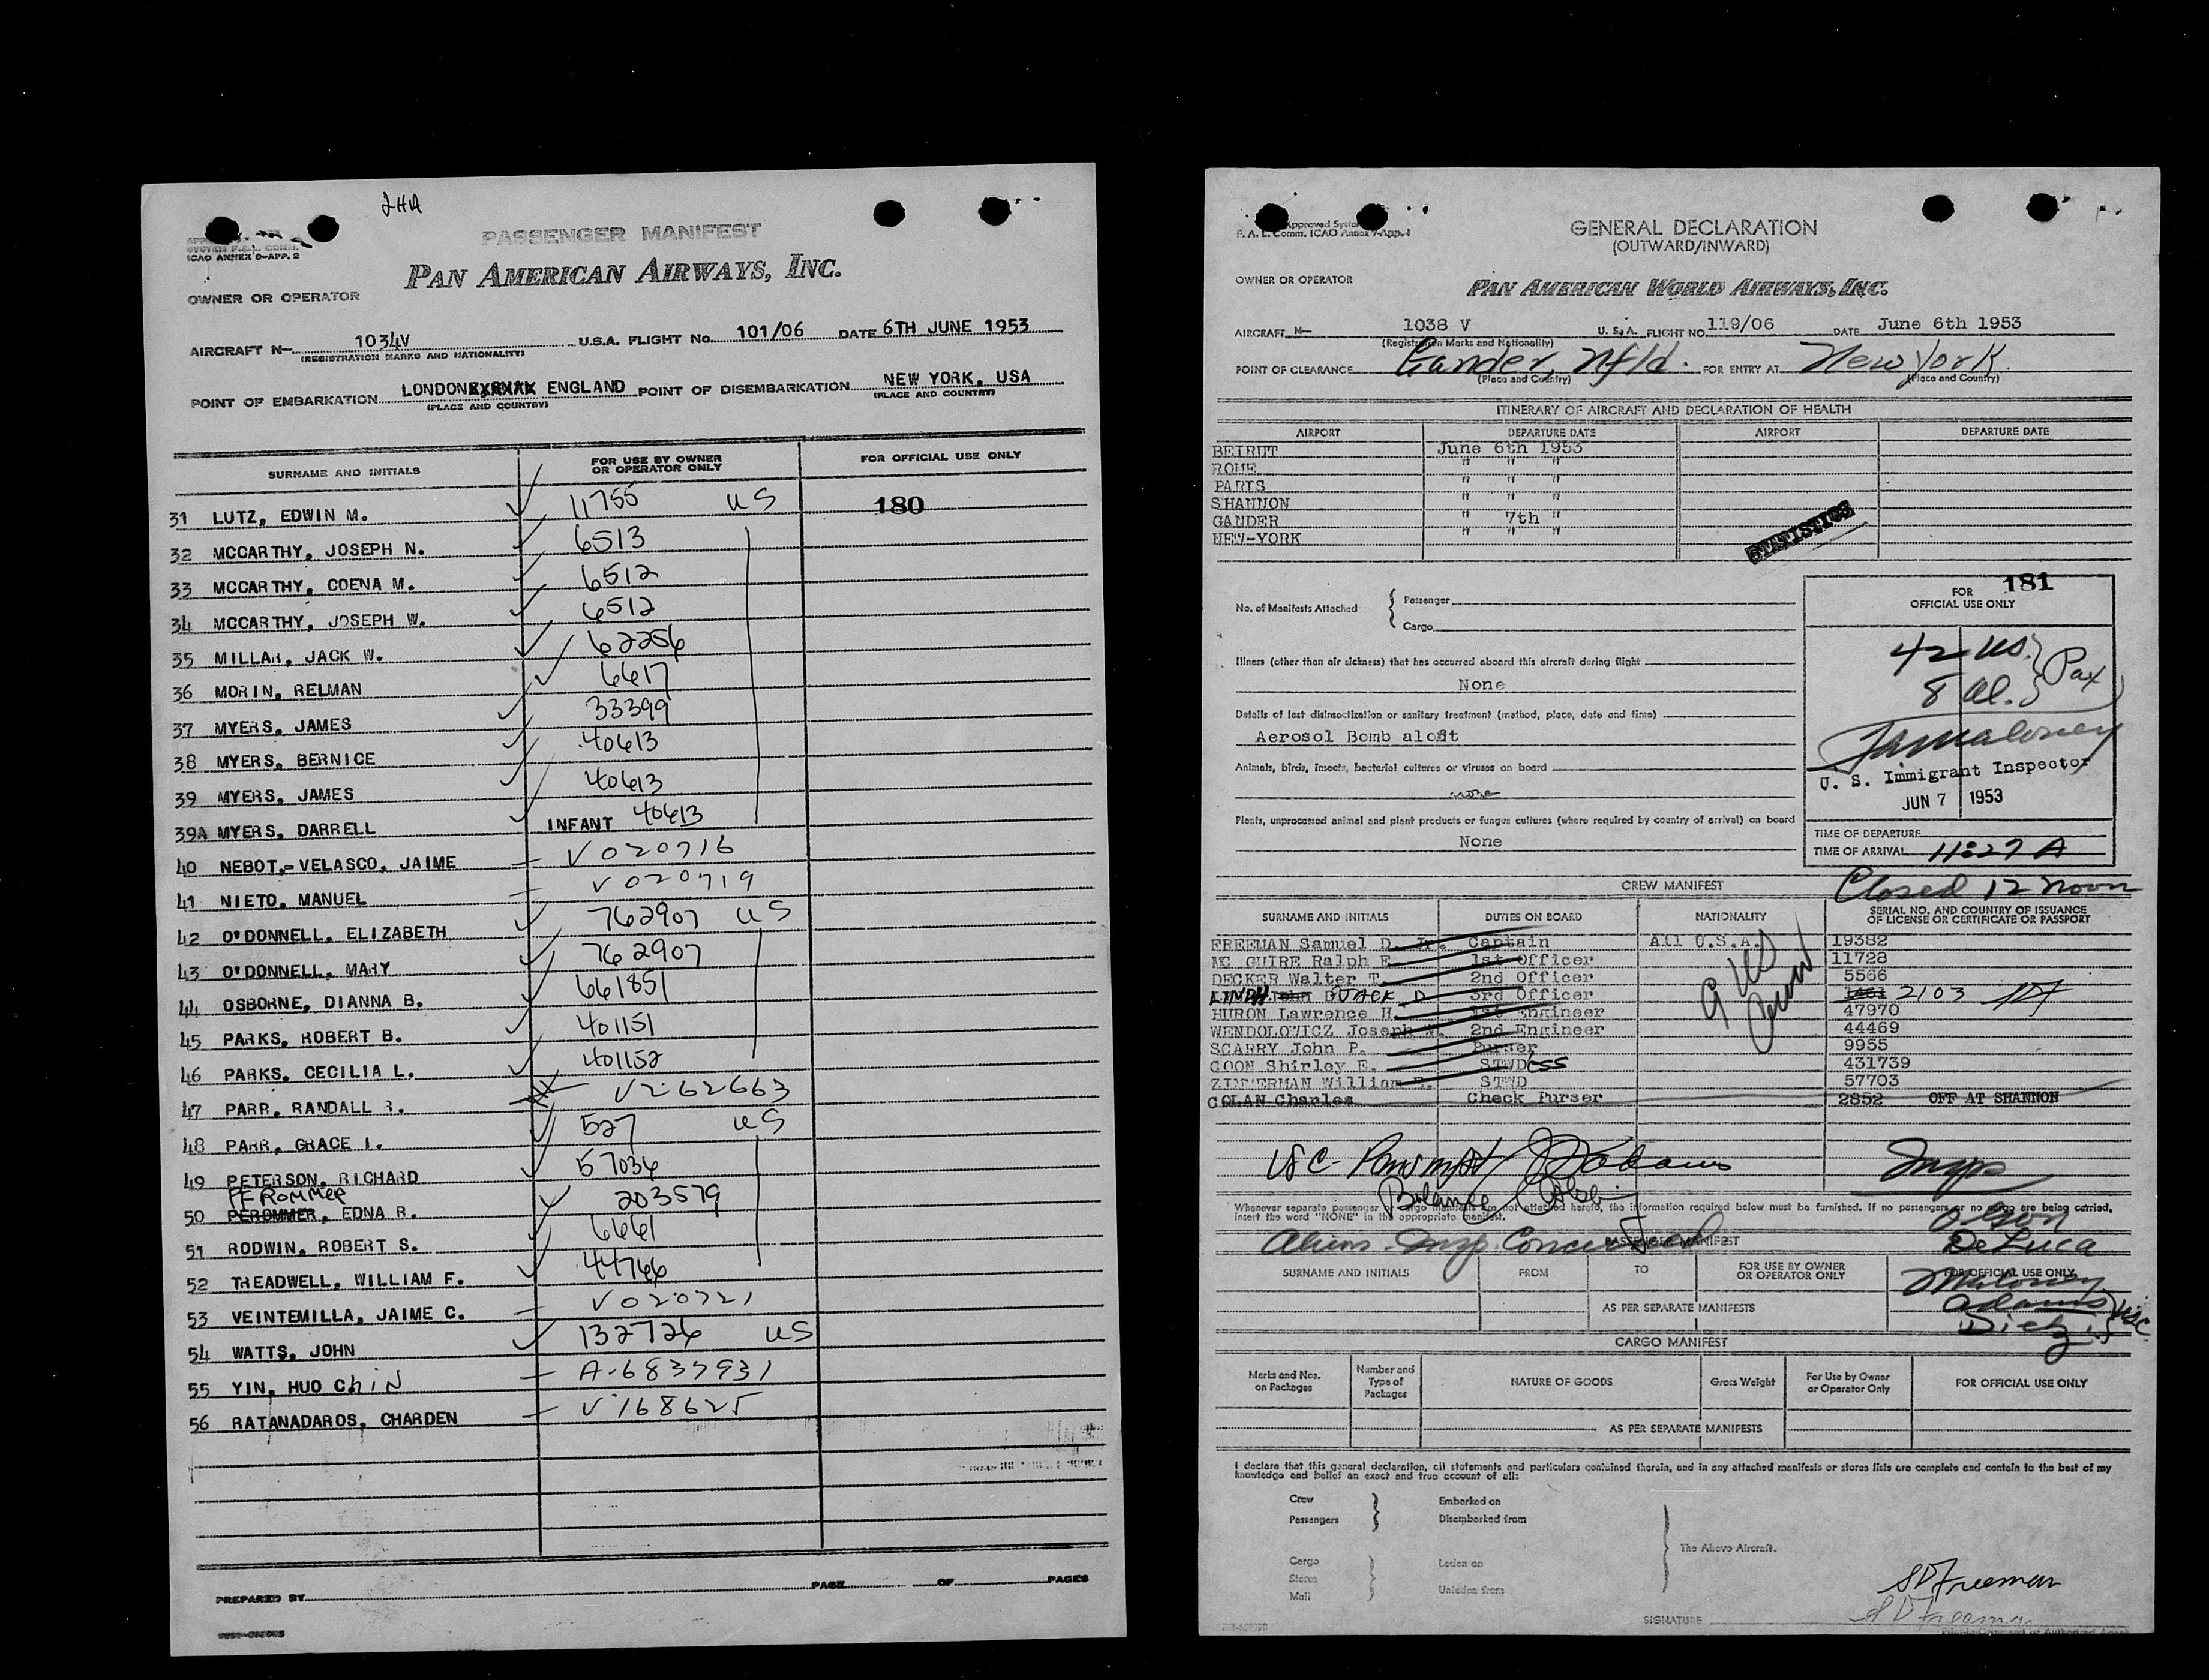 2HA
SYSTEM F.A.L. COMM.
ICAO ANNEX 9-APP. 2
PASSENGER MANIFEST
PAN AMERICAN AIRWAYS, INC.
OWNER OR OPERATOR
AIRCRAFT N- 1034V U.S.A. FLIGHT No. 101/06 DATE 6TH JUNE 1953
(REGISTRATION MARKS AND NATIONALITY)
POINT OF EMBARKATION LONDON ENGLAND POINT OF DISEMBARKATION NEW YORK, USA
(PLACE AND COUNTRY) (PLACE AND COUNTRY)
SURNAME AND INITIALS FOR USE BY OWNER OR OPERATOR ONLY FOR OFFICIAL USE ONLY
31 LUTZ, EDWIN M. 11755 US 180
32 MCCARTHY, JOSEPH N. 6513
33 MCCARTHY, COENA M. 6512
34 MCCARTHY, JOSEPH W. 6512
35 MILLAR, JACK W. 62256
36 MORIN, RELMAN 6617
37 MYERS, JAMES 33399
38 MYERS, BERNICE 40613
39 MYERS, JAMES 40613
39A MYERS, DARRELL INFANT 40613
40 NEBOT,-VELASCO, JAIME V020716
41 NIETO, MANUEL V020719
42 O'DONNELL, ELIZABETH 762907 US
43 O'DONNELL, MARY 762907
44 OSBORNE, DIANNA B. 661851
45 PARKS, ROBERT B. 401151
46 PARKS, CECILIA L. 401152
47 PARR, RANDALL R. V262663
48 PARR, GRACE I. 527 US
49 PETERSON, RICHARD 57036
PFROMMER
50 PEROMMER, EDNA R. 203579
51 RODWIN, ROBERT S. 6661
52 TREADWELL, WILLIAM F. 44766
53 VEINTEMILLA, JAIME C. V020721
54 WATTS, JOHN 132726 US
55 YIN, HUO CHIN A-6837931
56 RATANADAROS, CHARDEN V168625
PREPARED BY PAGE OF PAGES
Approved System
F. A. L. Comm. ICAO Annex 9-App. 1
GENERAL DECLARATION
(OUTWARD/INWARD)
OWNER OR OPERATOR PAN AMERICAN WORLD AIRWAYS, INC.
AIRCRAFT N- 1038 V U. S. A. FLIGHT NO. 119/06 DATE June 6th 1953
(Registration Marks and Nationality)
POINT OF CLEARANCE Gander, Nfld. FOR ENTRY AT New York
(Place and Country) (Place and Country)
ITINERARY OF AIRCRAFT AND DECLARATION OF HEALTH
AIRPORT DEPARTURE DATE AIRPORT DEPARTURE DATE
BEIRUT June 6th 1953
ROME " " "
PARIS " " "
SHANNON " " "
GANDER " 7th "
NEW-YORK " " "
STATISTICS
No. of Manifests Attached { Passenger
Cargo
FOR 181
OFFICIAL USE ONLY
42 US. } Pax
8 Al.
Illness (other than air sickness) that has occurred aboard this aircraft during flight
None
Details of last disinsectization or sanitary treatment (method, place, date and time)
Aerosol Bomb aloft
Animals, birds, insects, bacterial cultures or viruses on board
none
Plants, unprocessed animal and plant products or fungus cultures (where required by country of arrival) on board
None
U. S. Immigrant Inspector
JUN 7 1953
TIME OF DEPARTURE
TIME OF ARRIVAL 11:27 A
CREW MANIFEST Closed 12 Noon
SURNAME AND INITIALS DUTIES ON BOARD NATIONALITY SERIAL NO. AND COUNTRY OF ISSUANCE OF LICENSE OR CERTIFICATE OR PASSPORT
FREEMAN Samuel D. Jr. Captain All U.S.A. 19382
MC GUIRE Ralph E. 1st Officer 11728
DECKER Walter T. 2nd Officer 5566
LINDH JACK D 3rd Officer 2103
HURON Lawrence H. 1st Engineer 47970
WENDOLOWICZ Joseph W. 2nd Engineer 44469
SCARRY John P. Purser 9955
COON Shirley E. STWDESS 431739
ZIMMERMAN William STWD 57703
COLAN Charles Check Purser 2852 OFF AT SHANNON
Insps
Whenever separate passenger or cargo manifests are not attached hereto, the information required below must be furnished. If no passengers or no cargo are being carried,
insert the word "NONE" in the appropriate manifest.
Olson
PASSENGER MANIFEST
De Luca
SURNAME AND INITIALS FROM TO FOR USE BY OWNER OR OPERATOR ONLY FOR OFFICIAL USE ONLY
Maloney
Adams
Dietz
USC
AS PER SEPARATE MANIFESTS
CARGO MANIFEST
Marks and Nos. on Packages Number and Type of Packages NATURE OF GOODS Gross Weight For Use by Owner or Operator Only FOR OFFICIAL USE ONLY
AS PER SEPARATE MANIFESTS
I declare that this general declaration, all statements and particulars contained therein, and in any attached manifests or stores lists are complete and contain to the best of my
knowledge and belief an exact and true account of all:
Crew Embarked on
Passengers Disembarked from
The Above Aircraft.
Cargo Laden on
Stores
Mail Unladen from
SD Freeman
SIGNATURE S D Freeman
Pilot-in-Command or Authorized Agent